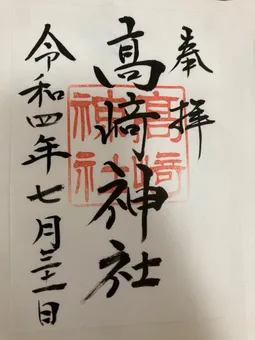 奉拝
髙﨑神社
髙﨑
神社
令和四年七月三十一日